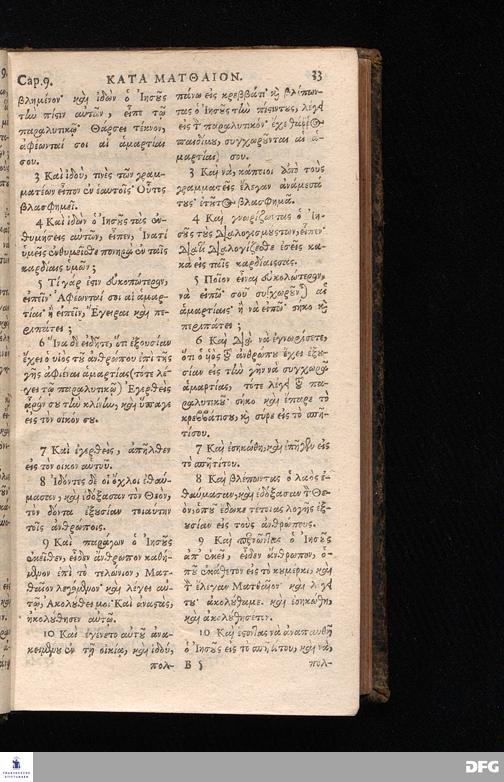 Cap.9. ΚΑΤΑ ΜΑΤΘΑΙΟΝ. 33
βλημένον· καὶ ἰδὼν ὁ Ἰησοῦς
τὴν πίστιν αὐτῶν, εἶπε τῷ
παραλυτικῷ· Θάρσει τέκνον,
ἀφέωνταί σοι αἱ ἁμαρτίαι
σου.
3 Καὶ ἰδού, τινὲς τῶν γραμ-
ματέων εἶπον ἐν ἑαυτοῖς· Οὗτος
βλασφημεῖ.
4 Καὶ ἰδὼν ὁ Ἰησοῦς τὰς ἐν-
θυμήσεις αὐτῶν, εἶπεν, Ἱνατί
ὑμεῖς ἐνθυμεῖσθε πονηρὰ ἐν ταῖς
καρδίαις ὑμῶν;
5 Τί γάρ ἐστιν εὐκοπώτερον,
εἰπεῖν· Ἀφέωνταί σοι αἱ ἁμαρ-
τίαι· ἢ εἰπεῖν, Ἔγειραι καὶ πε-
ριπάτει;
6 Ἵνα δὲ εἰδῆτε, ὅτι ἐξουσίαν
ἔχει ὁ υἱὸς τοῦ ἀνθρώπου ἐπὶ τῆς
γῆς ἀφιέναι ἁμαρτίας (τότε λέ-
γει τῷ παραλυτικῷ) Ἐγερθεὶς
ἆρόν σου τὴν κλίνην, καὶ ὕπαγε
εἰς τὸν οἶκόν σου.
7 Καὶ ἐγερθεὶς, ἀπῆλθεν
εἰς τὸν οἶκον αὐτοῦ.
8 Ἰδόντες δὲ οἱ ὄχλοι ἐθαύ-
μασαν, καὶ ἐδόξασαν τὸν Θεὸν,
τὸν δόντα ἐξουσίαν τοιαύτην
τοῖς ἀνθρώποις.
9 Καὶ παράγων ὁ Ἰησοῦς
ἐκεῖθεν, εἶδεν ἄνθρωπον καθή-
μενον ἐπὶ τὸ τελώνιον, Ματ-
θαῖον λεγόμενον· καὶ λέγει αὐ-
τῷ, Ἀκολούθει μοι· Καὶ ἀναστὰς,
ἠκολούθησεν αὐτῷ.
10 Καὶ ἐγένετο αὐτοῦ ἀνα-
κειμένου ἐν τῇ οἰκίᾳ, καὶ ἰδού,
πολ-
πάνω εἰς
τας ὁ Ἰησοῦς τὴν λέγει
εἰς
παιδίον, συγχωροῦνται αἱ ἁ-
μαρτίαι σου.
3 Καὶ νὰ, κάποιοι ἀπὸ τοὺς
γραμματεῖς ἔλεγαν ἀνάμεσά
τους· ἐτοῦτος βλασφημᾶ.
4 Καὶ γνωρίζωντας ὁ Ἰη-
σοῦς τοὺς διαλογισμούς των, εἶπεν·
Διατὶ διαλογίζεσθε ἐσεῖς κα-
κὰ εἰς ταῖς καρδίαις σας.
5 Ποῖον εἶναι εὐκολώτερον,
νὰ εἰπῶ σου αἱ
ἁμαρτίαις· ἢ νὰ εἰπῶ· σήκω καὶ
περιπάτει;
6 Καὶ διὰ νὰ ἐγνωρίσετε,
ὅτι ὁ υἱὸς τοῦ ἀνθρώπου ἔχει ἐξου-
σίαν εἰς τὴν γῆν νὰ συγχωρᾷ
ἁμαρτίας, τότε λέγει τοῦ πα-
ραλυτικοῦ· σήκω καὶ ἔπαρε τὸ
κρεββάτι σου, καὶ σύρε εἰς τὸ σπῆ-
τί σου.
7 Καὶ ἐσηκώθη, καὶ ἐπῆγεν εἰς
τὸ σπῆτί του.
8 Καὶ βλέποντας ὁ λαὸς ἐ-
θαύμασαν, καὶ ἐδόξασαν τὸν Θε-
ὸν, ὁποῦ ἔδωκε τέτοιας λογῆς ἐξ-
ουσίαν εἰς τοὺς ἀνθρώπους.
9 Καὶ ὁ Ἰησοῦς
ἀπ' ἐκεῖ, εἶδεν ἄνθρωπον, ὁ-
ποῦ ἐκάθετον εἰς τὸ κουμέρκι, καὶ
τὸν ἔλεγαν Ματθαῖον· καὶ λέγει
του· ἀκολούθα με. καὶ ἐσηκώθη,
καὶ ἀκολούθησέ τον.
10 Καὶ ἔστωντας νὰ ἀναπαυθῇ
ὁ Ἰησοῦς εἰς τὸ σπῆτί του, καὶ νὰ,
B 5 πολ-
DFG